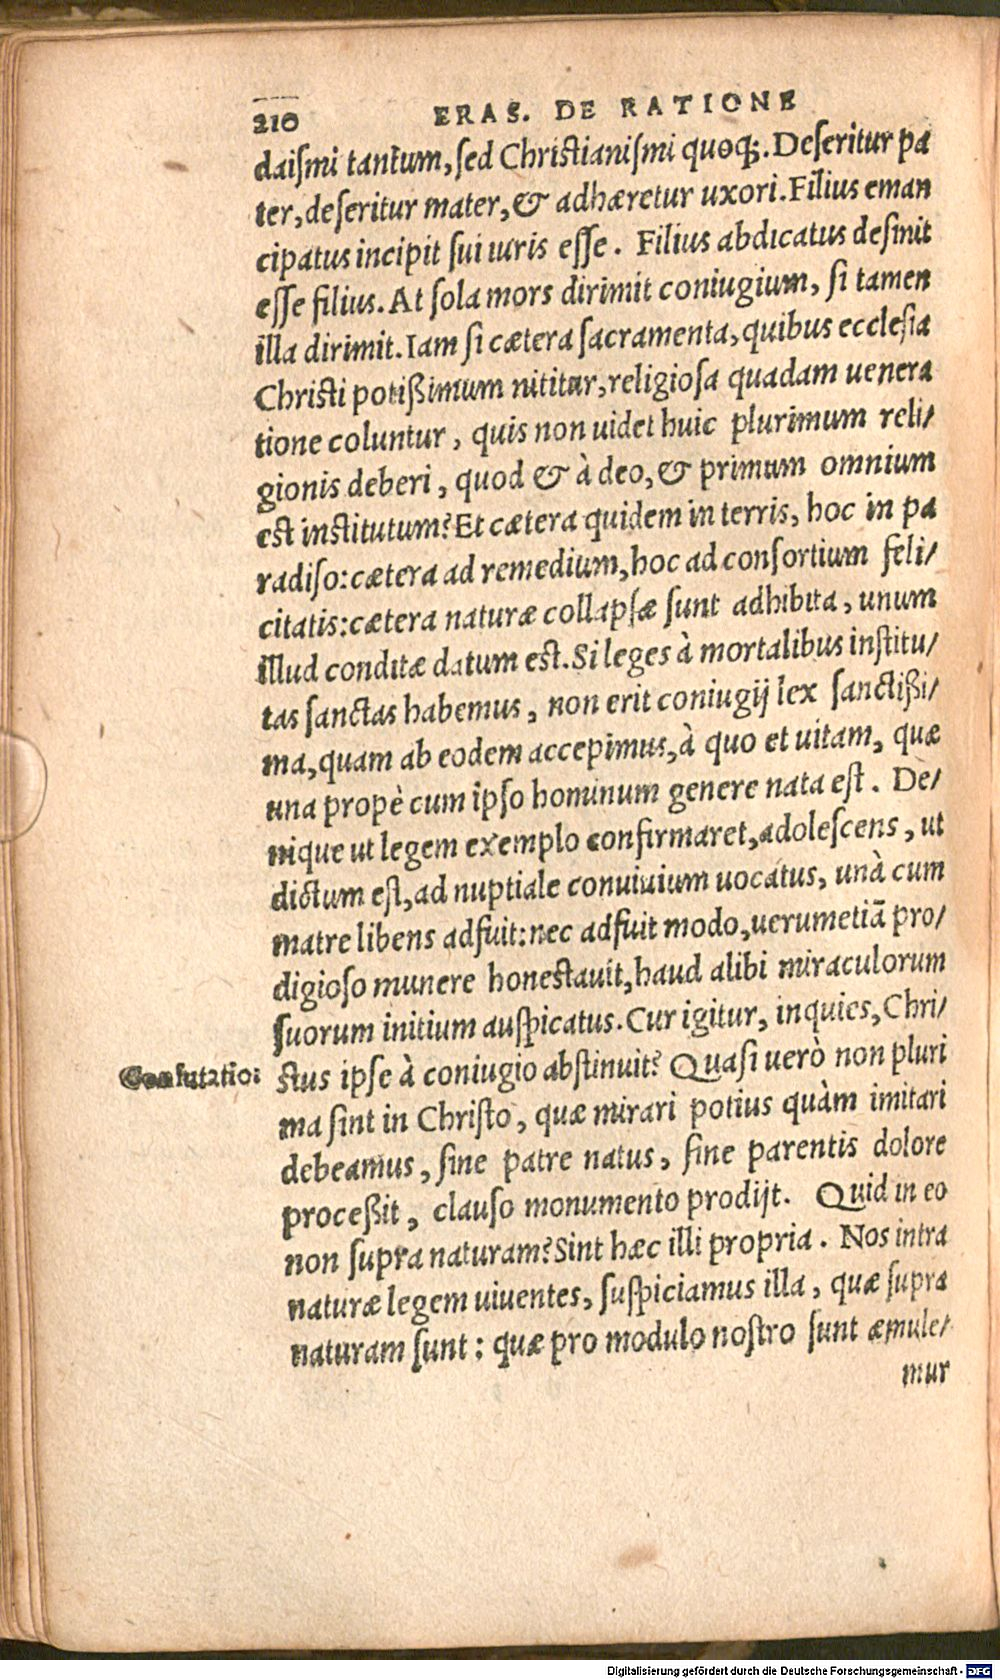 210 ERAS. DE RATIONE
daiſmi tantum, ſed Chriſtianiſmi quoq;. Deſeritur pa
ter, deſeritur mater, & adhæretur uxori. Filius eman
cipatus incipit ſui iuris eſſe. Filius abdicatus deſinit
eſſe filius. At ſola mors dirimit coniugium, ſi tamen
illa dirimit. Iam ſi cætera ſacramenta, quibus eccleſia
Chriſti potißimum nititur, religioſa quadam uenera
tione coluntur, quis non uidet huic plurimum reli/
gionis deberi, quod & à deo, & primum omnium
eſt inſtitutum? Et cætera quidem in terris, hoc in pa
radiſo: cætera ad remedium, hoc ad conſortium feli/
citatis: cætera naturæ collapſæ ſunt adhibita, unum
illud conditæ datum eſt. Si leges à mortalibus inſtitu/
tas ſanctas habemus, non erit coniugij lex ſanctißi/
ma, quam ab eodem accepimus, à quo et uitam, quæ
una propè cum ipſo hominum genere nata eſt. De/
nique ut legem exemplo confirmaret, adoleſcens, ut
dictum eſt, ad nuptiale conuiuium uocatus, unà cum
matre libens adfuit: nec adfuit modo, uerumetiã pro/
digioſo munere honeſtauit, haud alibi miraculorum
ſuorum initium auſpicatus. Cur igitur, inquies, Chri/
Confutatio: ſtus ipſe à coniugio abſtinuit? Quaſi uerò non pluri
ma ſint in Chriſto, quæ mirari potius quàm imitari
debeamus, ſine patre natus, ſine parentis dolore
proceßit, clauſo monumento prodijt. Quid in eo
non ſupra naturam? Sint hæc illi propria. Nos intra
naturæ legem uiuentes, ſuſpiciamus illa, quæ ſupra
naturam ſunt: quæ pro modulo noſtro ſunt æmule/
mur
Digitalisierung gefördert durch die Deutsche Forschungsgemeinschaft - DFG